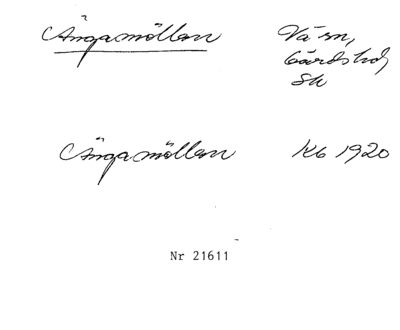 Ängamöllan Värn,
Gärdshd,
Sk
Ängamöllan Kb 1920
Nr 21611